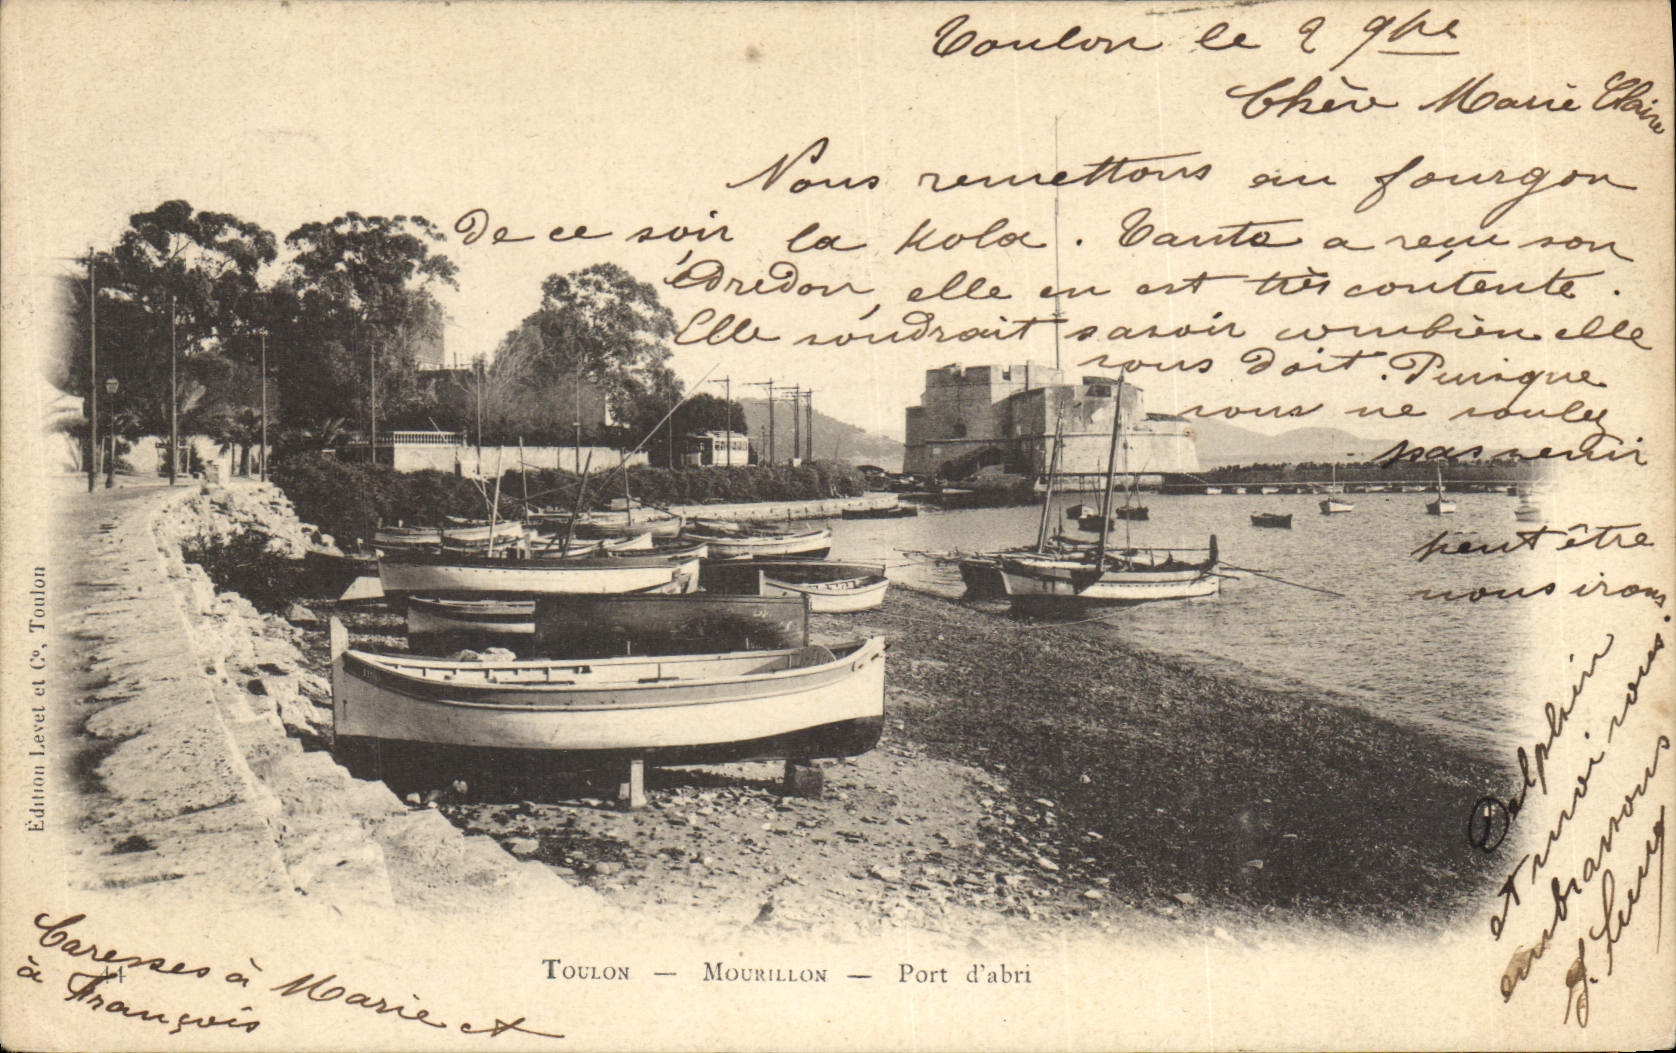 Toulon le 2 9bre
Chère Marie Claire
Nous remettons au fourgon
de ce soir la Kola. Tanta a reçu son
édredon, elle en est très contente.
Elle voudrait savoir combien elle
vous doit. Puisque
vous ne voulez
pas venir
peut être
nous irons.
Delphin
et moi vous
embrassons
J.
Caresses à Marie et
à François
44
TOULON — MOURILLON — Port d'abri
Édition Levet et Cº, Toulon